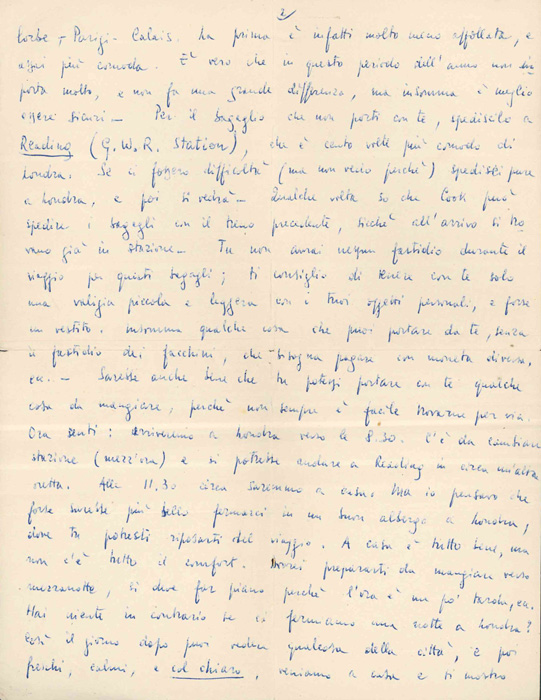 2/
Corbe - Parigi - Calais. La prima è infatti molto meno affollata, e
assai più comoda. È vero che in questo periodo dell'anno non im
porta molto, e non fa una grande differenza, ma insomma è meglio
essere sicuri - Per il bagaglio che non porti con te, spediscilo a
Reading (G.W.R. Station), che è cento volte più comodo di
Londra. Se ci fossero difficoltà (ma non vedo perché) spedisci pure
a Londra, e poi si vedrà - Qualche volta so che Cook può
spedire i bagagli con il treno precedente, sicché all'arrivo si tro
vano già in stazione - Tu non avrai nessun fastidio durante il
viaggio per questi bagagli; ti consiglio di tenere con te solo
una valigia piccola e leggera con i tuoi oggetti personali, e forse
un vestito. Insomma qualche cosa che puoi portare da te, senza
il fastidio dei facchini, che bisogna pagare con moneta diversa,
ecc. - Sarebbe anche bene che tu potessi portare con te qualche
cosa da mangiare, perché non sempre è facile trovarne per via.
Ora senti: arriveremo a Londra verso le 8.30. C'è da cambiare
stazione (mezz'ora) e si potrebbe andare a Reading in circa un'altra
oretta. Alle 11.30 circa saremmo a casa. Ma io pensavo che
forse sarebbe più bello fermarci in un buon albergo a Londra,
dove tu potresti riposarti del viaggio. A casa è tutto bene, ma
non c'è tutto il comfort. Dovrei prepararti da mangiare verso
mezzanotte, si deve far piano perché l'ora è un po' tarda, ecc.
Hai niente in contrario se ci fermiamo una notte a Londra?
Così il giorno dopo puoi vedere qualcosa della città, e poi
freschi, calmi, e col chiaro, veniamo a casa e ti mostro